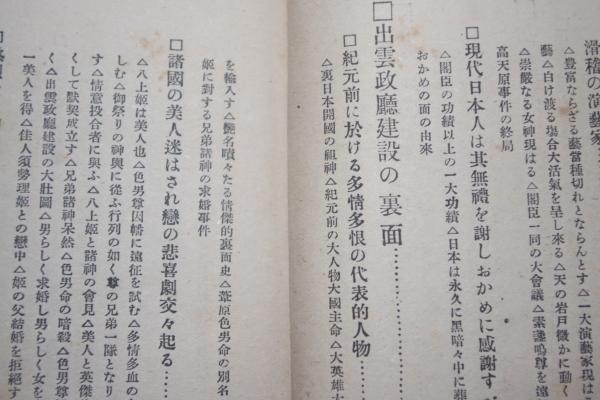 滑稽の演藝家……
△豊富ならざる藝當種切れとならんとす△一大演藝家現は
藝△白け渡る場合大活氣を呈し來る△天の岩戸微かに動く
△崇嚴なる女神現はる△閣臣一同の大會議△素盞嗚尊を遠
高天原事件の終局
□現代日本人は其無禮を謝しおかめに感謝す
△閣臣の功績以上の一大功績△日本は永久に黑暗々中に葬
おかめの面の由來
□出雲政廳建設の裏面……………
□紀元前に於ける多情多恨の代表的人物……
△裏日本開國の祖神△紀元前の大人物大國主命△大英雄大
を輸入す△艶名嘖々たる情傑的裏面史△葦原色男命の別名
姬に對する兄弟諸神の求婚事件
□諸國の美人迷はされ戀の悲喜劇交々起る……
△八上姬は美人也△色男尊因幡に遠征を試む△多情多血の
しむ△御祭りの神輿に從ふ行列の如く尊の兄弟一隊となり
す△情意投合者に與ふ△八上姬と諸神の會見△美人と英傑
くして默契成立す△兄弟諸神呆然△色男命の暗殺△色男尊
く△出雲政廳建設の大壯圖△男らしく求婚し男らしく女を
一美人を得△佳人須勢理姬との戀中△姬の父結婚を拒絕す